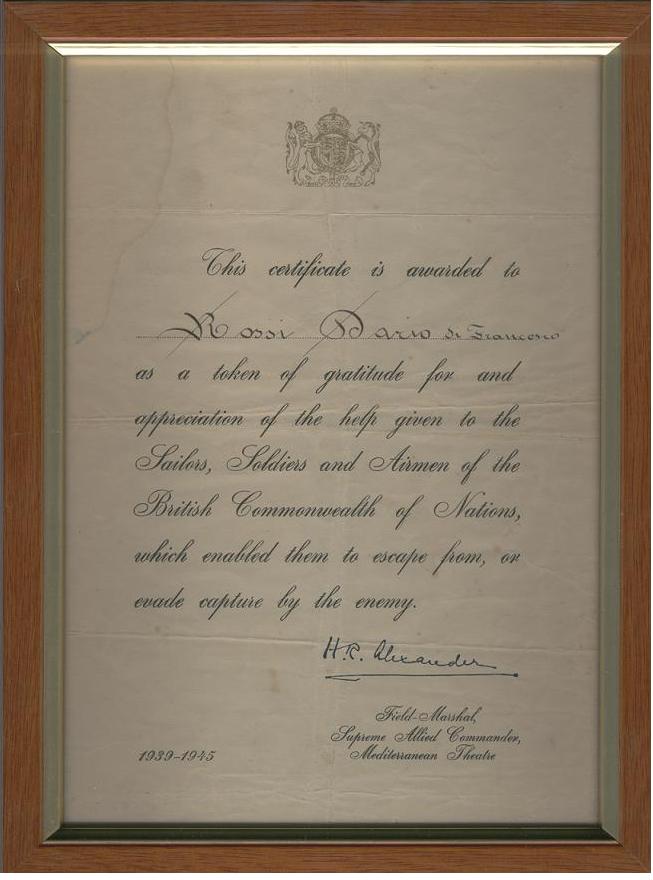 This certificate is awarded to
Rossi Dario di Francesco
as a token of gratitude for and
appreciation of the help given to the
Sailors, Soldiers and Airmen of the
British Commonwealth of Nations,
which enabled them to escape from, or
evade capture by the enemy.
H.R. Alexander
Field-Marshal,
Supreme Allied Commander,
1939-1945 Mediterranean Theatre